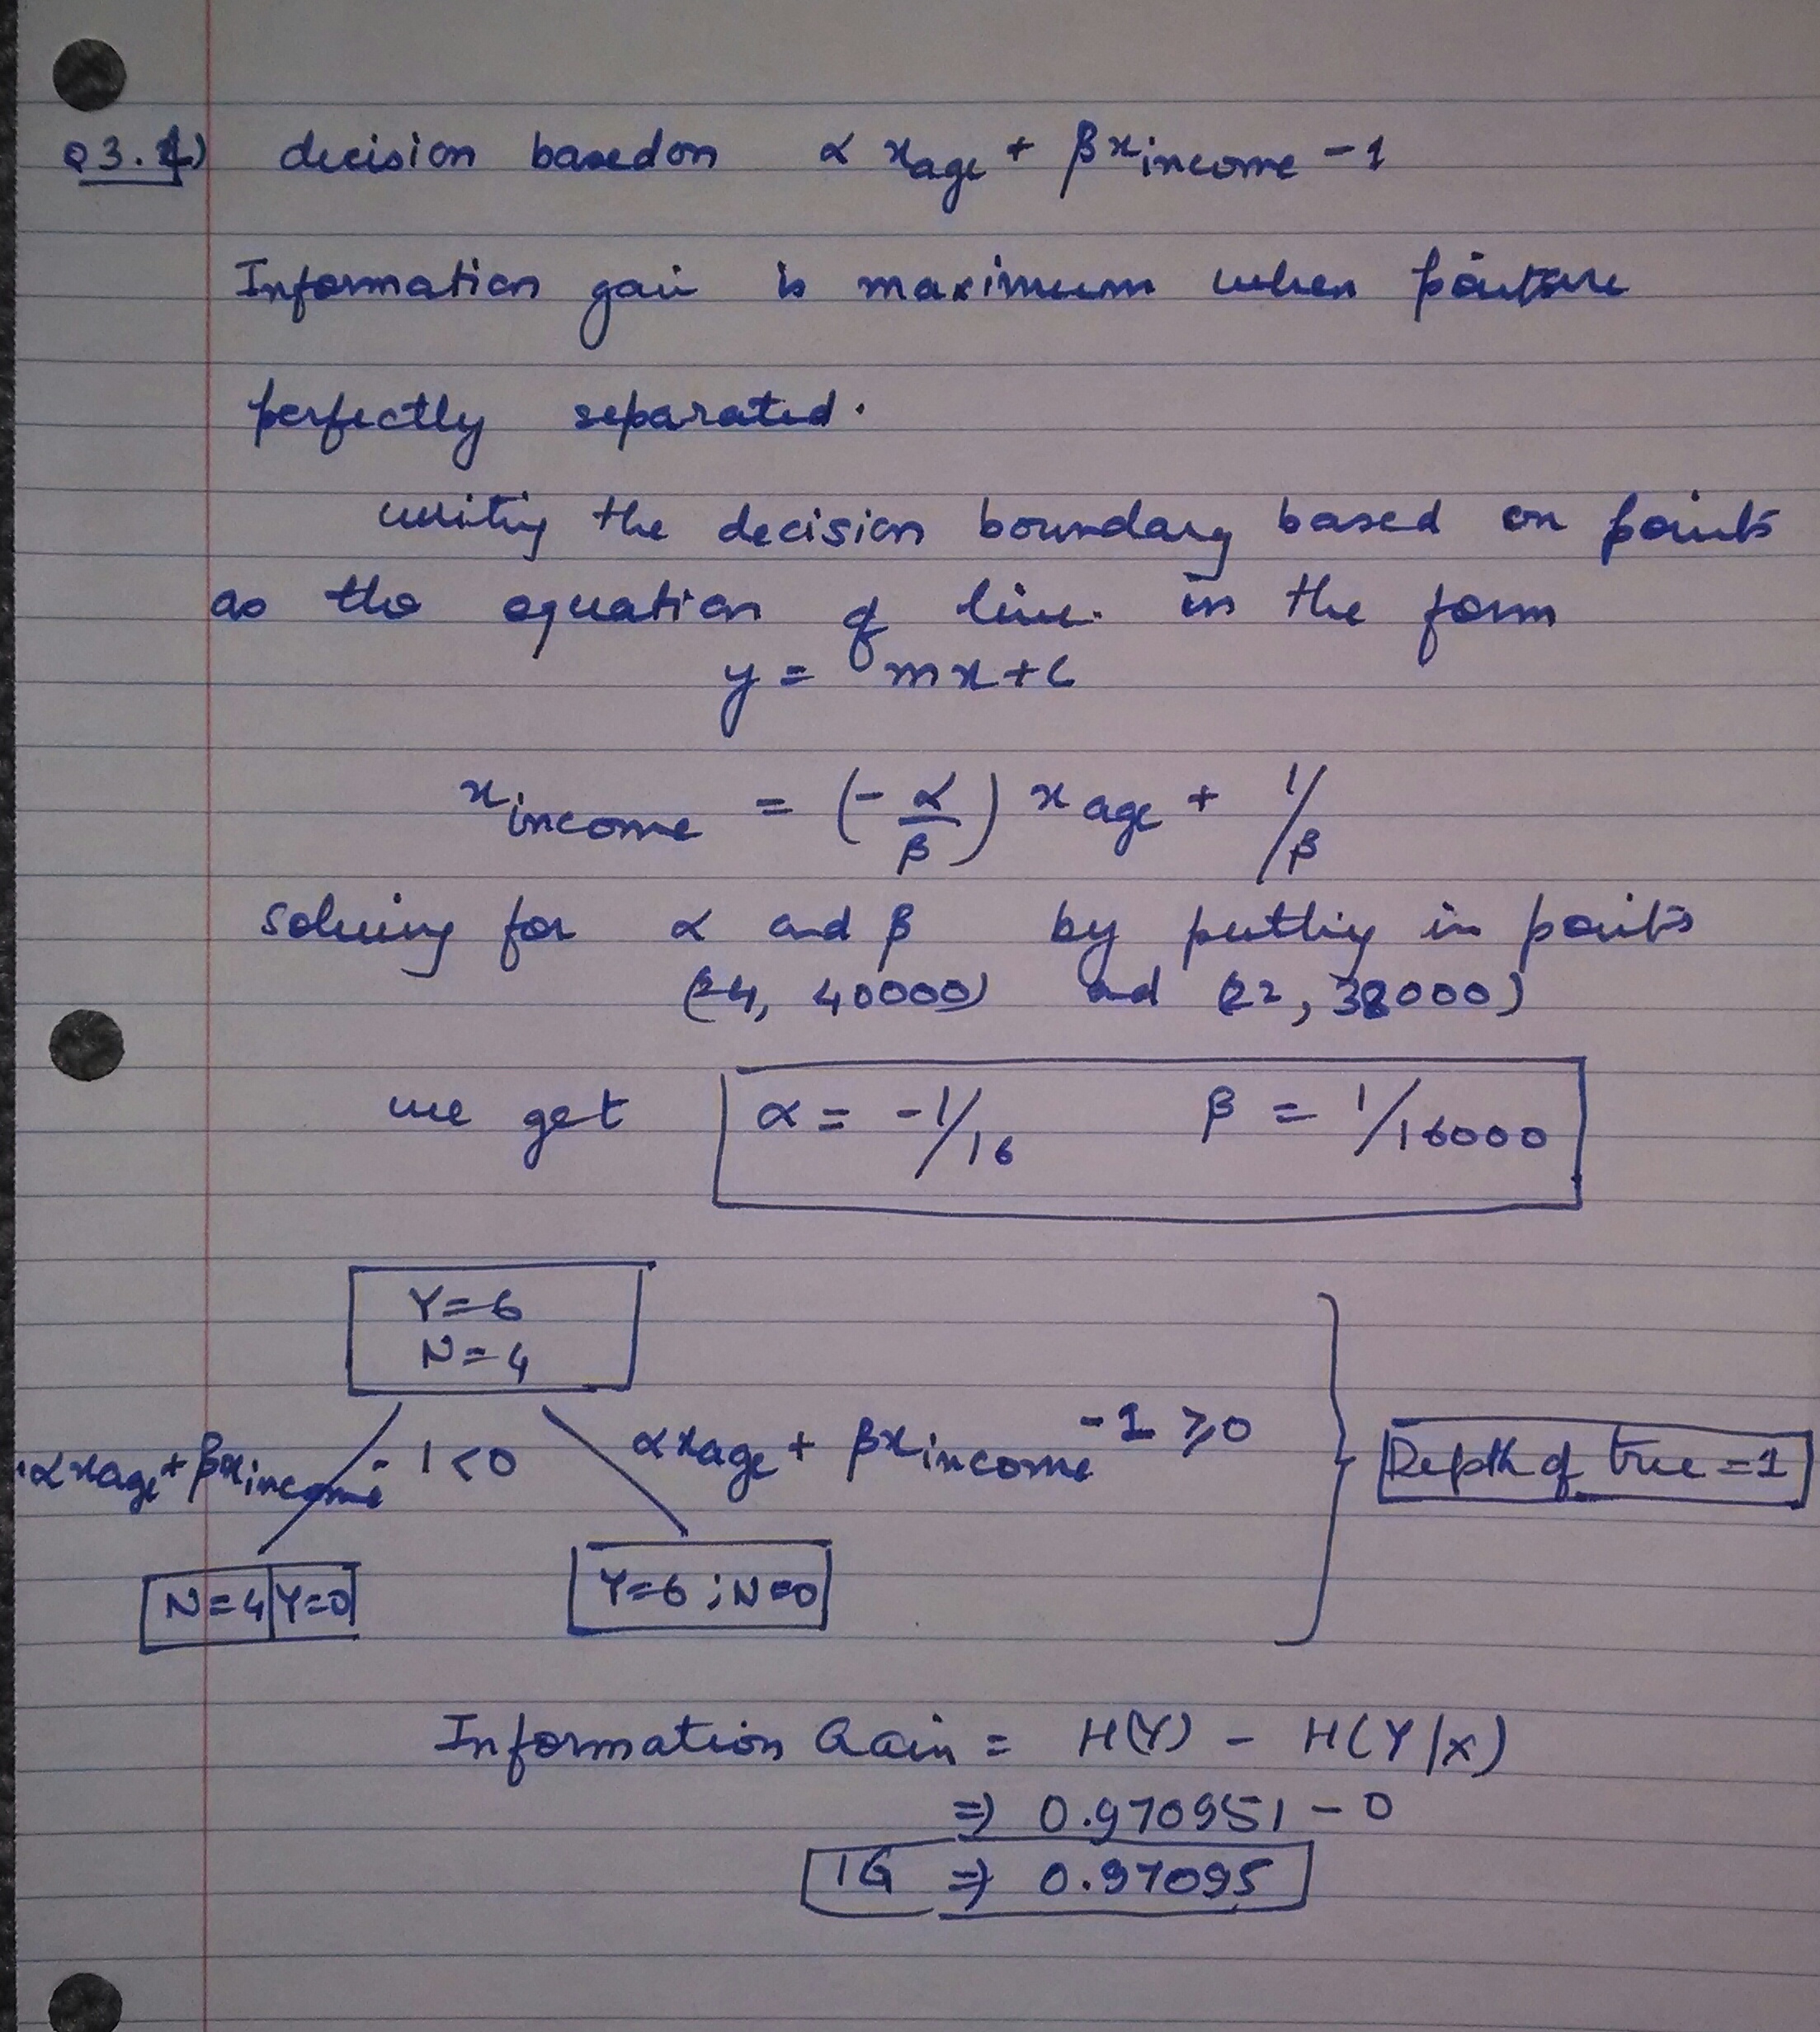 Q3.4) decision based on α x_age + β x_income - 1
Information gain is maximum when points are
perfectly separated.
writing the decision boundary based on points
as the equation of line. in the form
y = mx + c
x_income = (-α/β) x_age + 1/β
solving for α and β by putting in points
(24, 40000) and (22, 38000)
we get α = -1/16 β = 1/16000
Y=6
N=4
αx_age + βx_income - 1 < 0 αx_age + βx_income - 1 ≥ 0
Depth of tree = 1
N=4 Y=0 Y=6 ; N=0
Information Gain = H(Y) - H(Y/X)
⇒ 0.970951 - 0
IG ⇒ 0.97095